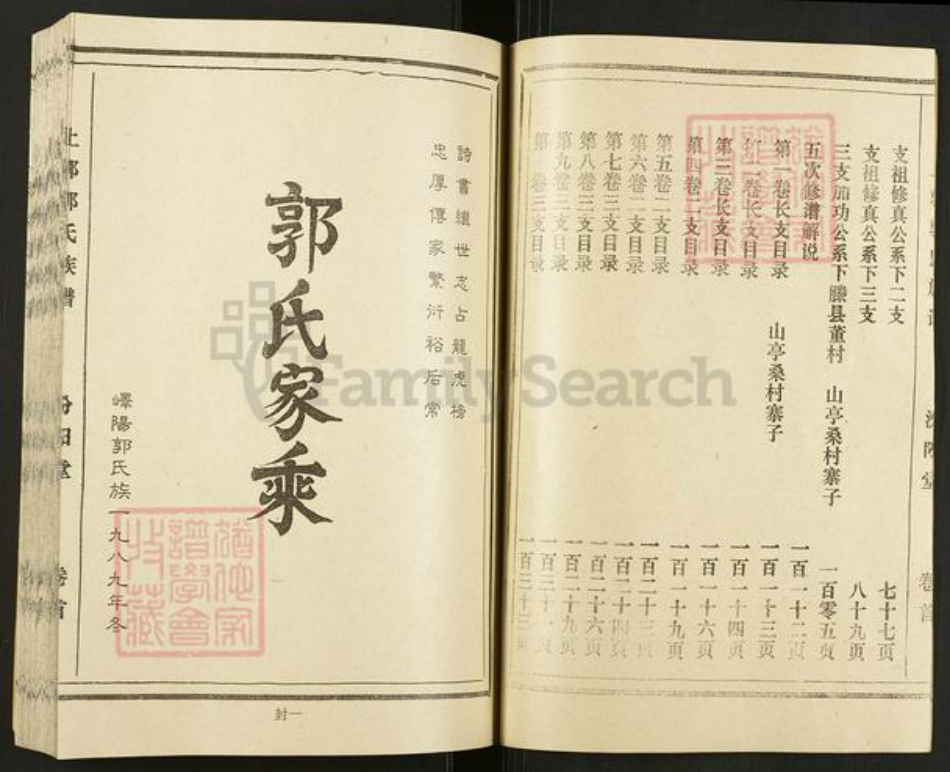 支祖修真公系下二支 七十七页
支祖修真公系下三支 八十九页
三支加功公系下滕县董村 山亭桑村寨子 一百零五页
五次修谱解说 一百一十二页
第一卷长支目录 山亭桑村寨子 一百一十三页
第二卷长支目录 一百一十四页
第三卷长支目录 一百一十六页
第四卷二支目录 一百一十九页
第五卷二支目录 一百二十三页
第六卷二支目录 一百二十四页
第七卷三支目录 一百二十六页
第八卷三支目录 一百二十九页
第九卷三支目录 一百三十一页
第 卷三支目录 一百三十三
卷首
詩書繼世志占龍虎榜
忠厚傳家繁衍裕后常
郭氏家乘
嶧陽郭氏族一九八九年冬
封一
郭氏族譜 汾阳堂 卷首
FamilySearch